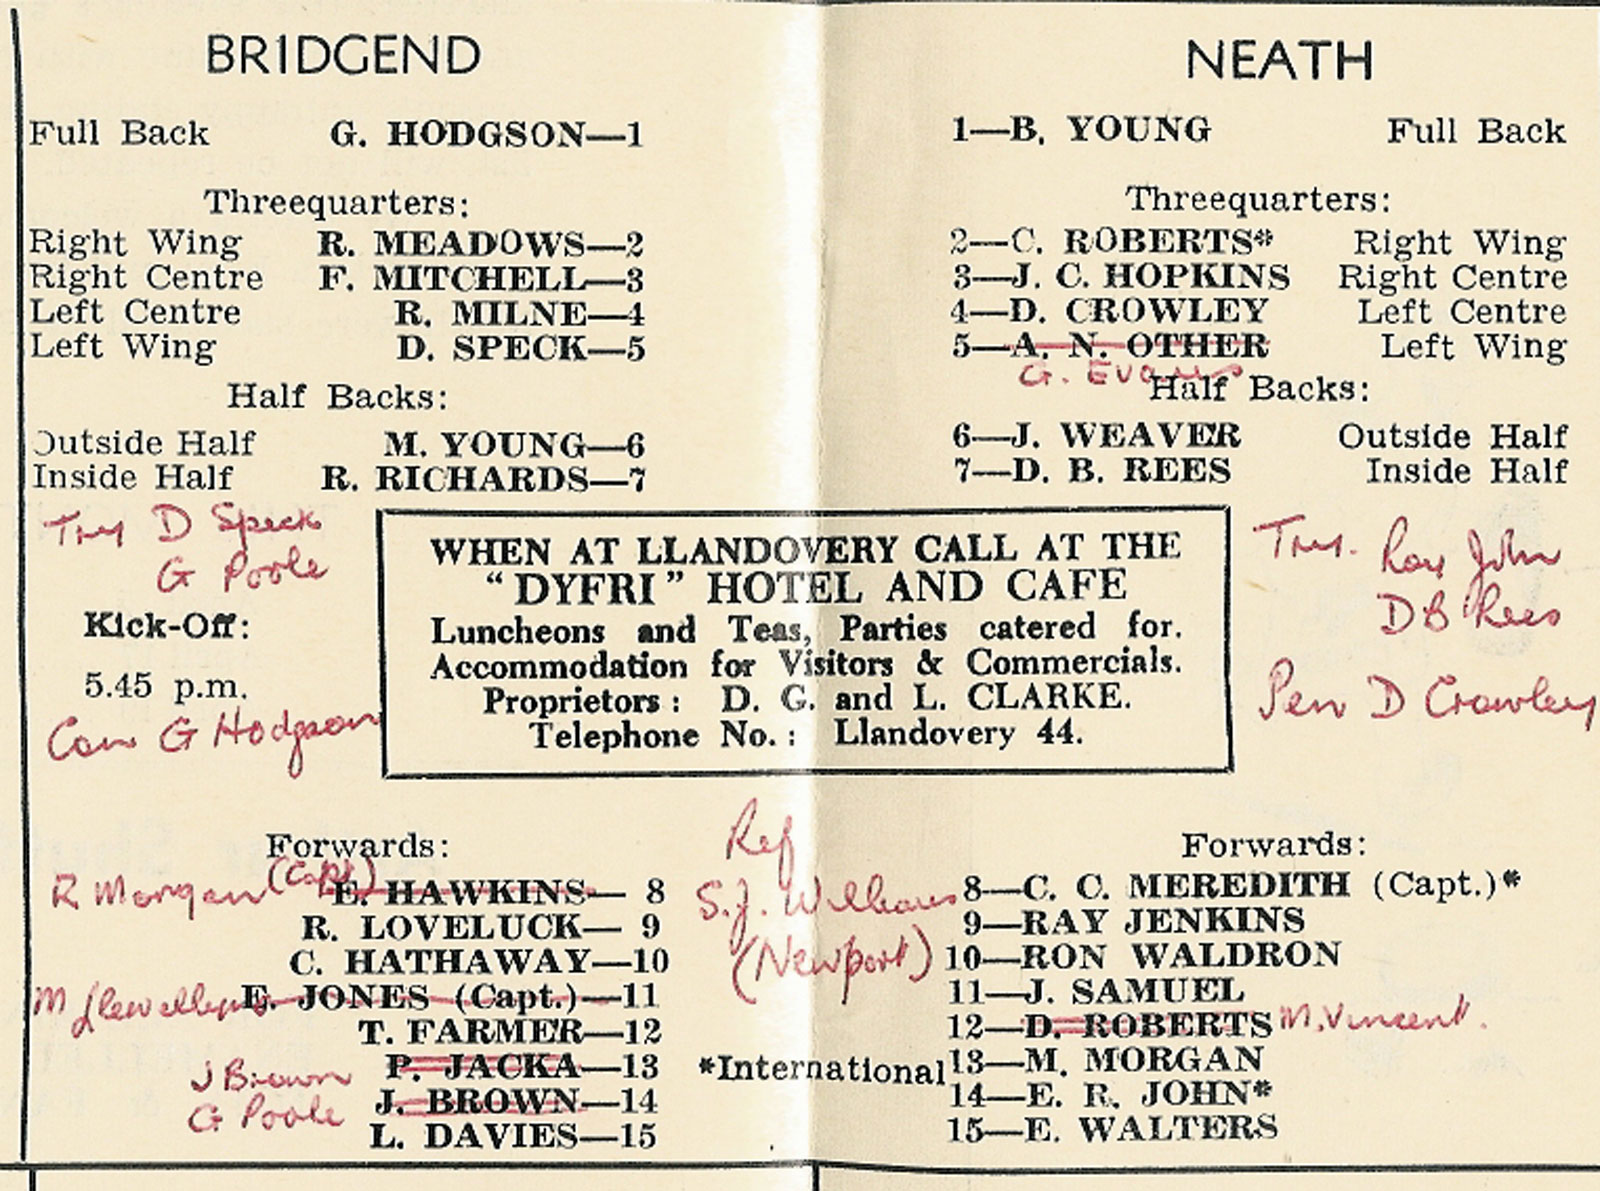 BRIDGEND
Full Back G. HODGSON—1
Threequarters:
Right Wing R. MEADOWS—2
Right Centre F. MITCHELL—3
Left Centre R. MILNE—4
Left Wing D. SPECK—5
Half Backs:
Outside Half M. YOUNG—6
Inside Half R. RICHARDS—7
Try D Speck
G Poole
Kick-Off:
5.45 p.m.
Con G Hodgson
NEATH
1—B. YOUNG Full Back
Threequarters:
2—C. ROBERTS* Right Wing
3—J. C. HOPKINS Right Centre
4—D. CROWLEY Left Centre
5—A. N. OTHER Left Wing
G. Evans
Half Backs:
6—J. WEAVER Outside Half
7—D. B. REES Inside Half
Trys. Roy John
D B Rees
Pen D Crowley
WHEN AT LLANDOVERY CALL AT THE
“DYFRI” HOTEL AND CAFE
Luncheons and Teas, Parties catered for.
Accommodation for Visitors & Commercials.
Proprietors: D. G. and L. CLARKE.
Telephone No.: Llandovery 44.
Forwards:
R Morgan (Capt)
E. HAWKINS— 8
R. LOVELUCK— 9
C. HATHAWAY—10
M Llewellyn E. JONES (Capt.)—11
T. FARMER—12
J Brown P. JACKA—13
G Poole J. BROWN—14
L. DAVIES—15
Ref
S.J. Williams
(Newport)
*International
Forwards:
8—C. C. MEREDITH (Capt.)*
9—RAY JENKINS
10—RON WALDRON
11—J. SAMUEL
12—D. ROBERTS M. Vincent.
13—M. MORGAN
14—E. R. JOHN*
15—E. WALTERS